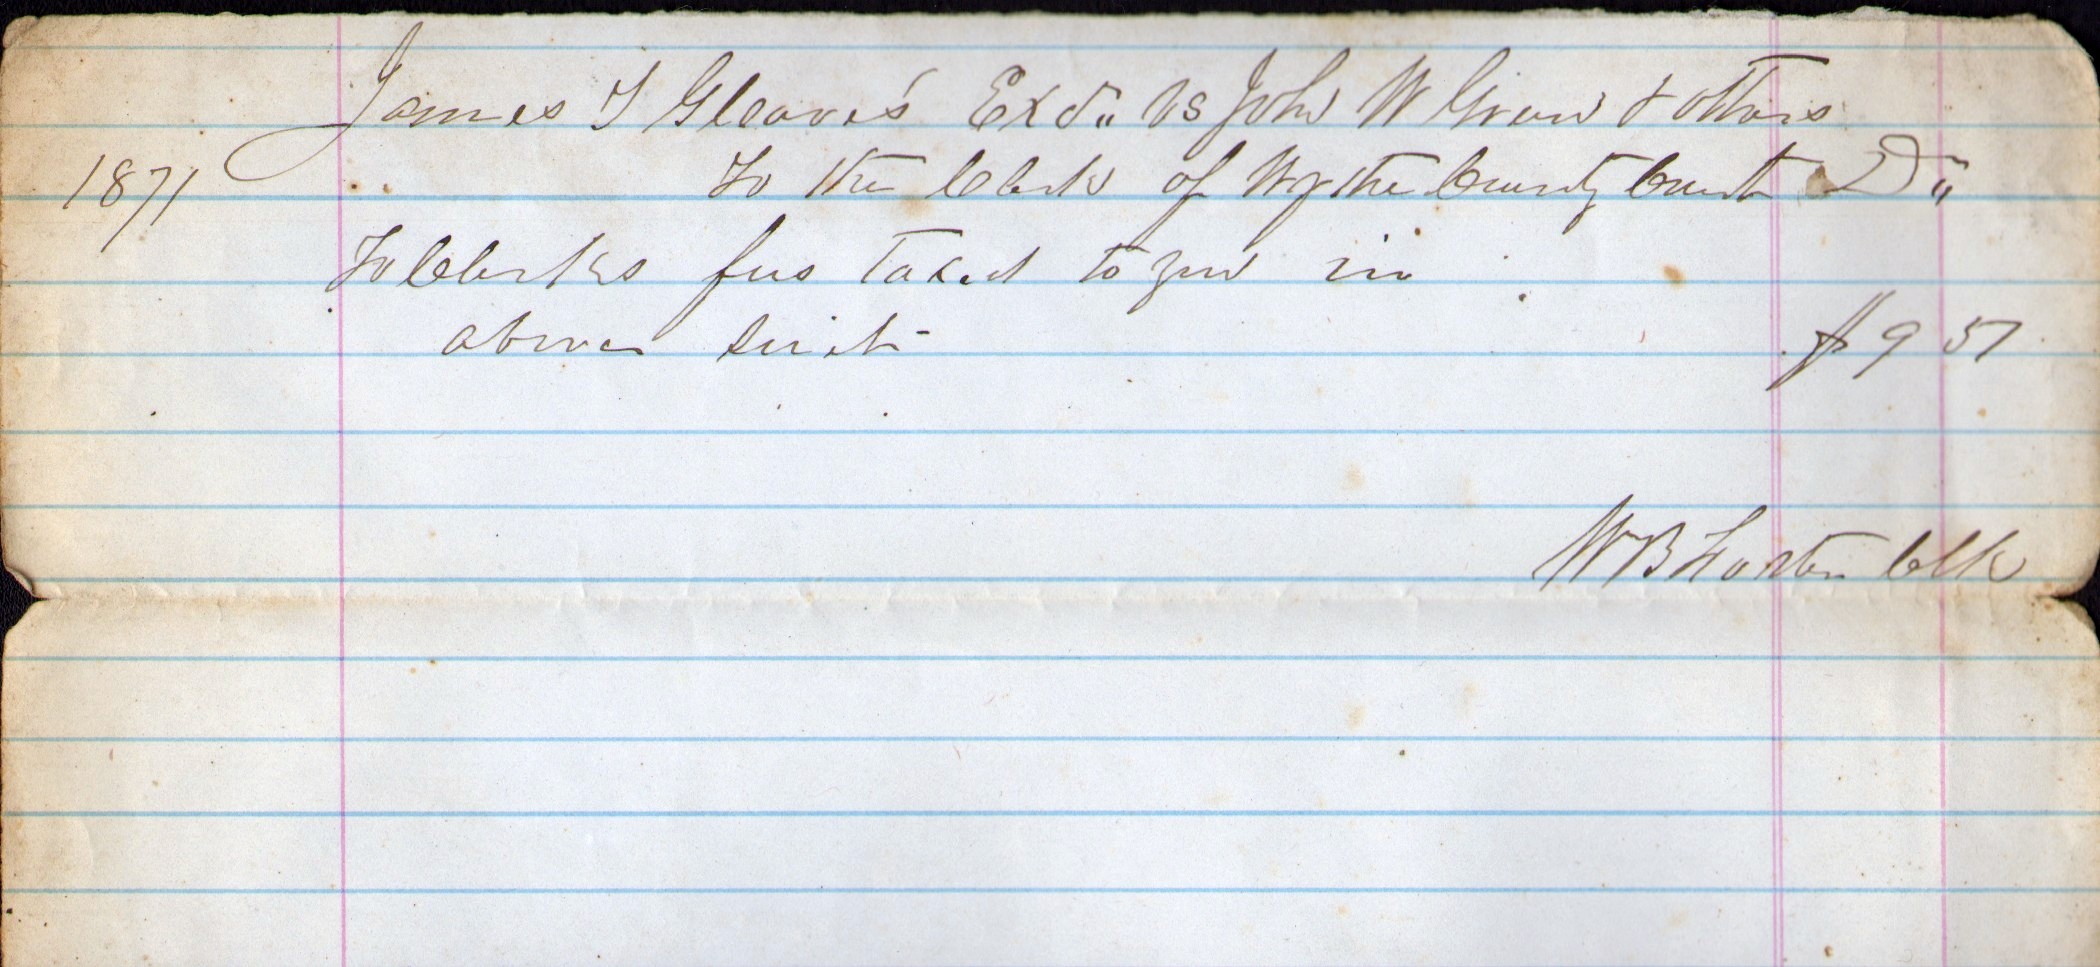 James T Gleaves Exor" vs John W & others
1871 To the Clerk of Wythe County Court Dr"
To Clerks fees taxed to you in
above suit $9 51
W B Foster Clk